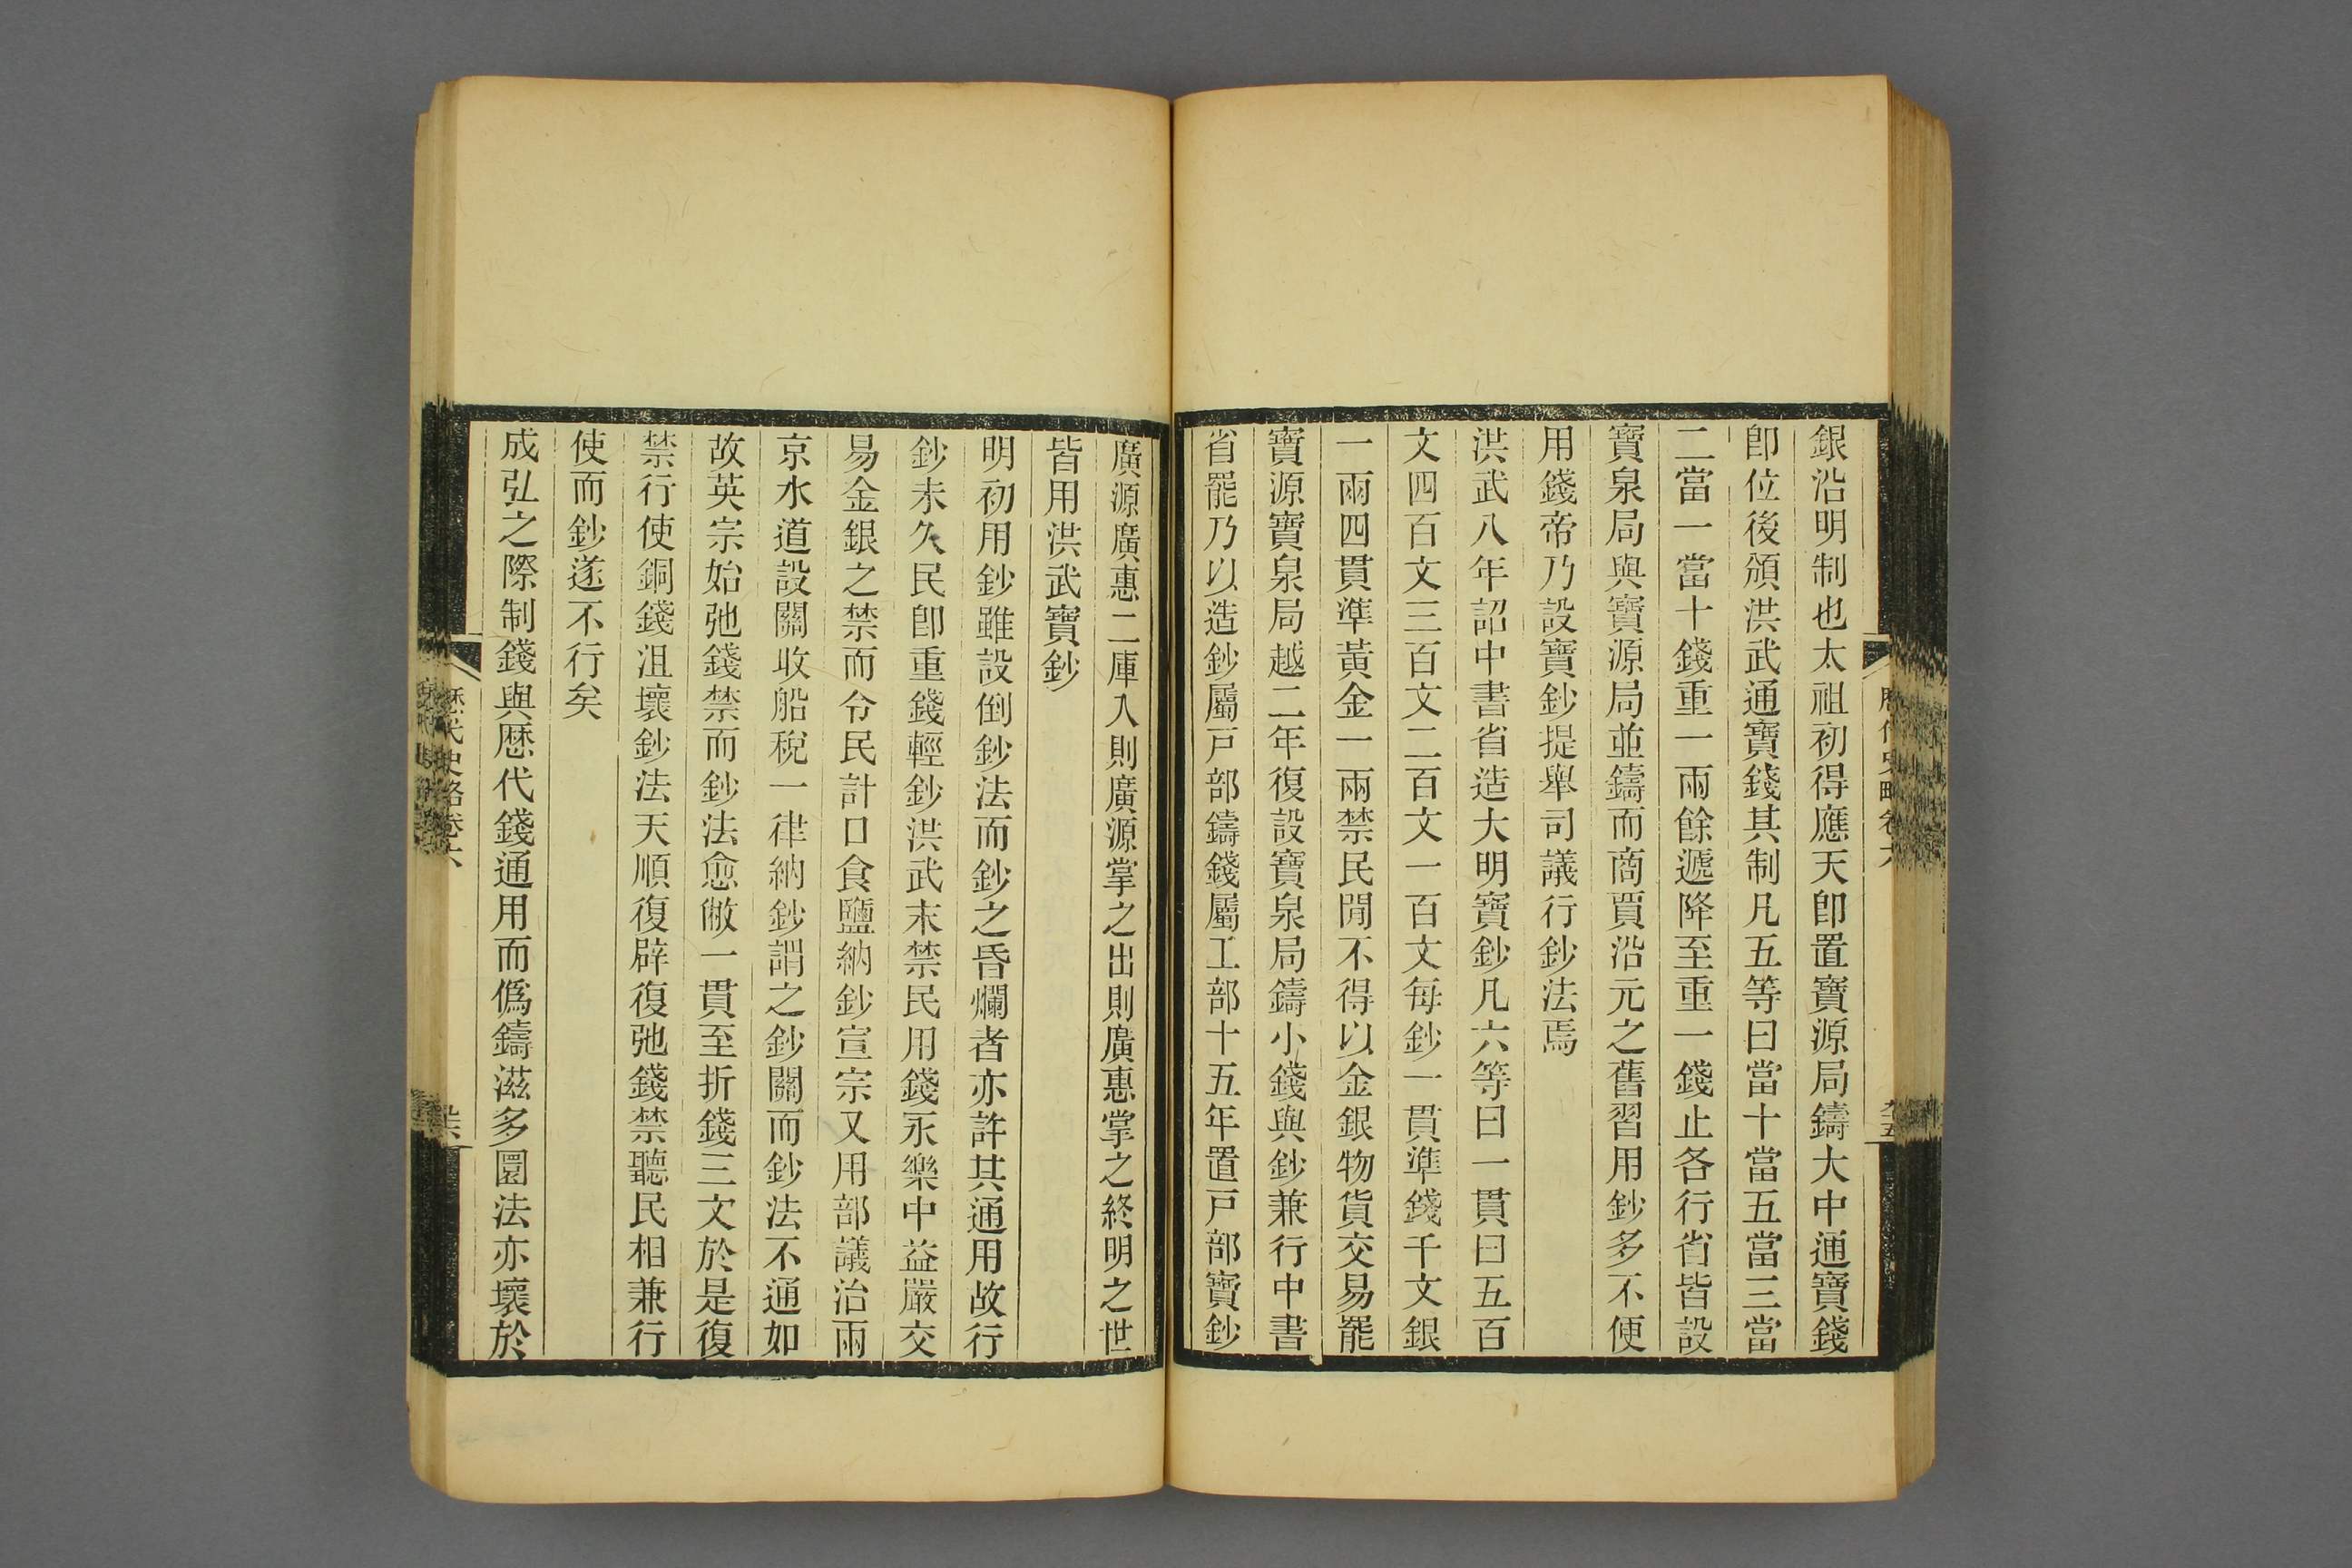 銀沿明制也太祖初得應天卽置寶源局鑄大中通寶錢
卽位後頒洪武通寶錢其制凡五等曰當十當五當三當
二當一當十錢重一兩餘遞降至重一錢止各行省皆設
寶泉局與寶源局並鑄而商賈沿元之舊習用鈔多不便
用錢帝乃設寶鈔提舉司議行鈔法焉
洪武八年詔中書省造大明寶鈔凡六等曰一貫曰五百
文四百文三百文二百文一百文每鈔一貫準錢千文銀
一兩四貫準黃金一兩禁民閒不得以金銀物貨交易罷
寶源寶泉局越二年復設寶泉局鑄小錢與鈔兼行中書
省罷乃以造鈔屬戸部鑄錢屬工部十五年置戸部寶鈔
廣源廣惠二庫入則廣源掌之出則廣惠掌之終明之世
皆用洪武寶鈔
明初用鈔雖設倒鈔法而鈔之昏爛者亦許其通用故行
鈔未久民卽重錢輕鈔洪武末禁民用錢永樂中益嚴交
易金銀之禁而令民計口食鹽納鈔宣宗又用部議治兩
京水道設關收船稅一律納鈔謂之鈔關而鈔法不通如
故英宗始弛錢禁而鈔法愈敝一貫至折錢三文於是復
禁行使銅錢沮壞鈔法天順復辟復弛錢禁聽民相兼行
使而鈔遂不行矣
成弘之際制錢與歷代錢通用而僞鑄滋多圜法亦壞於
歷代史略卷六